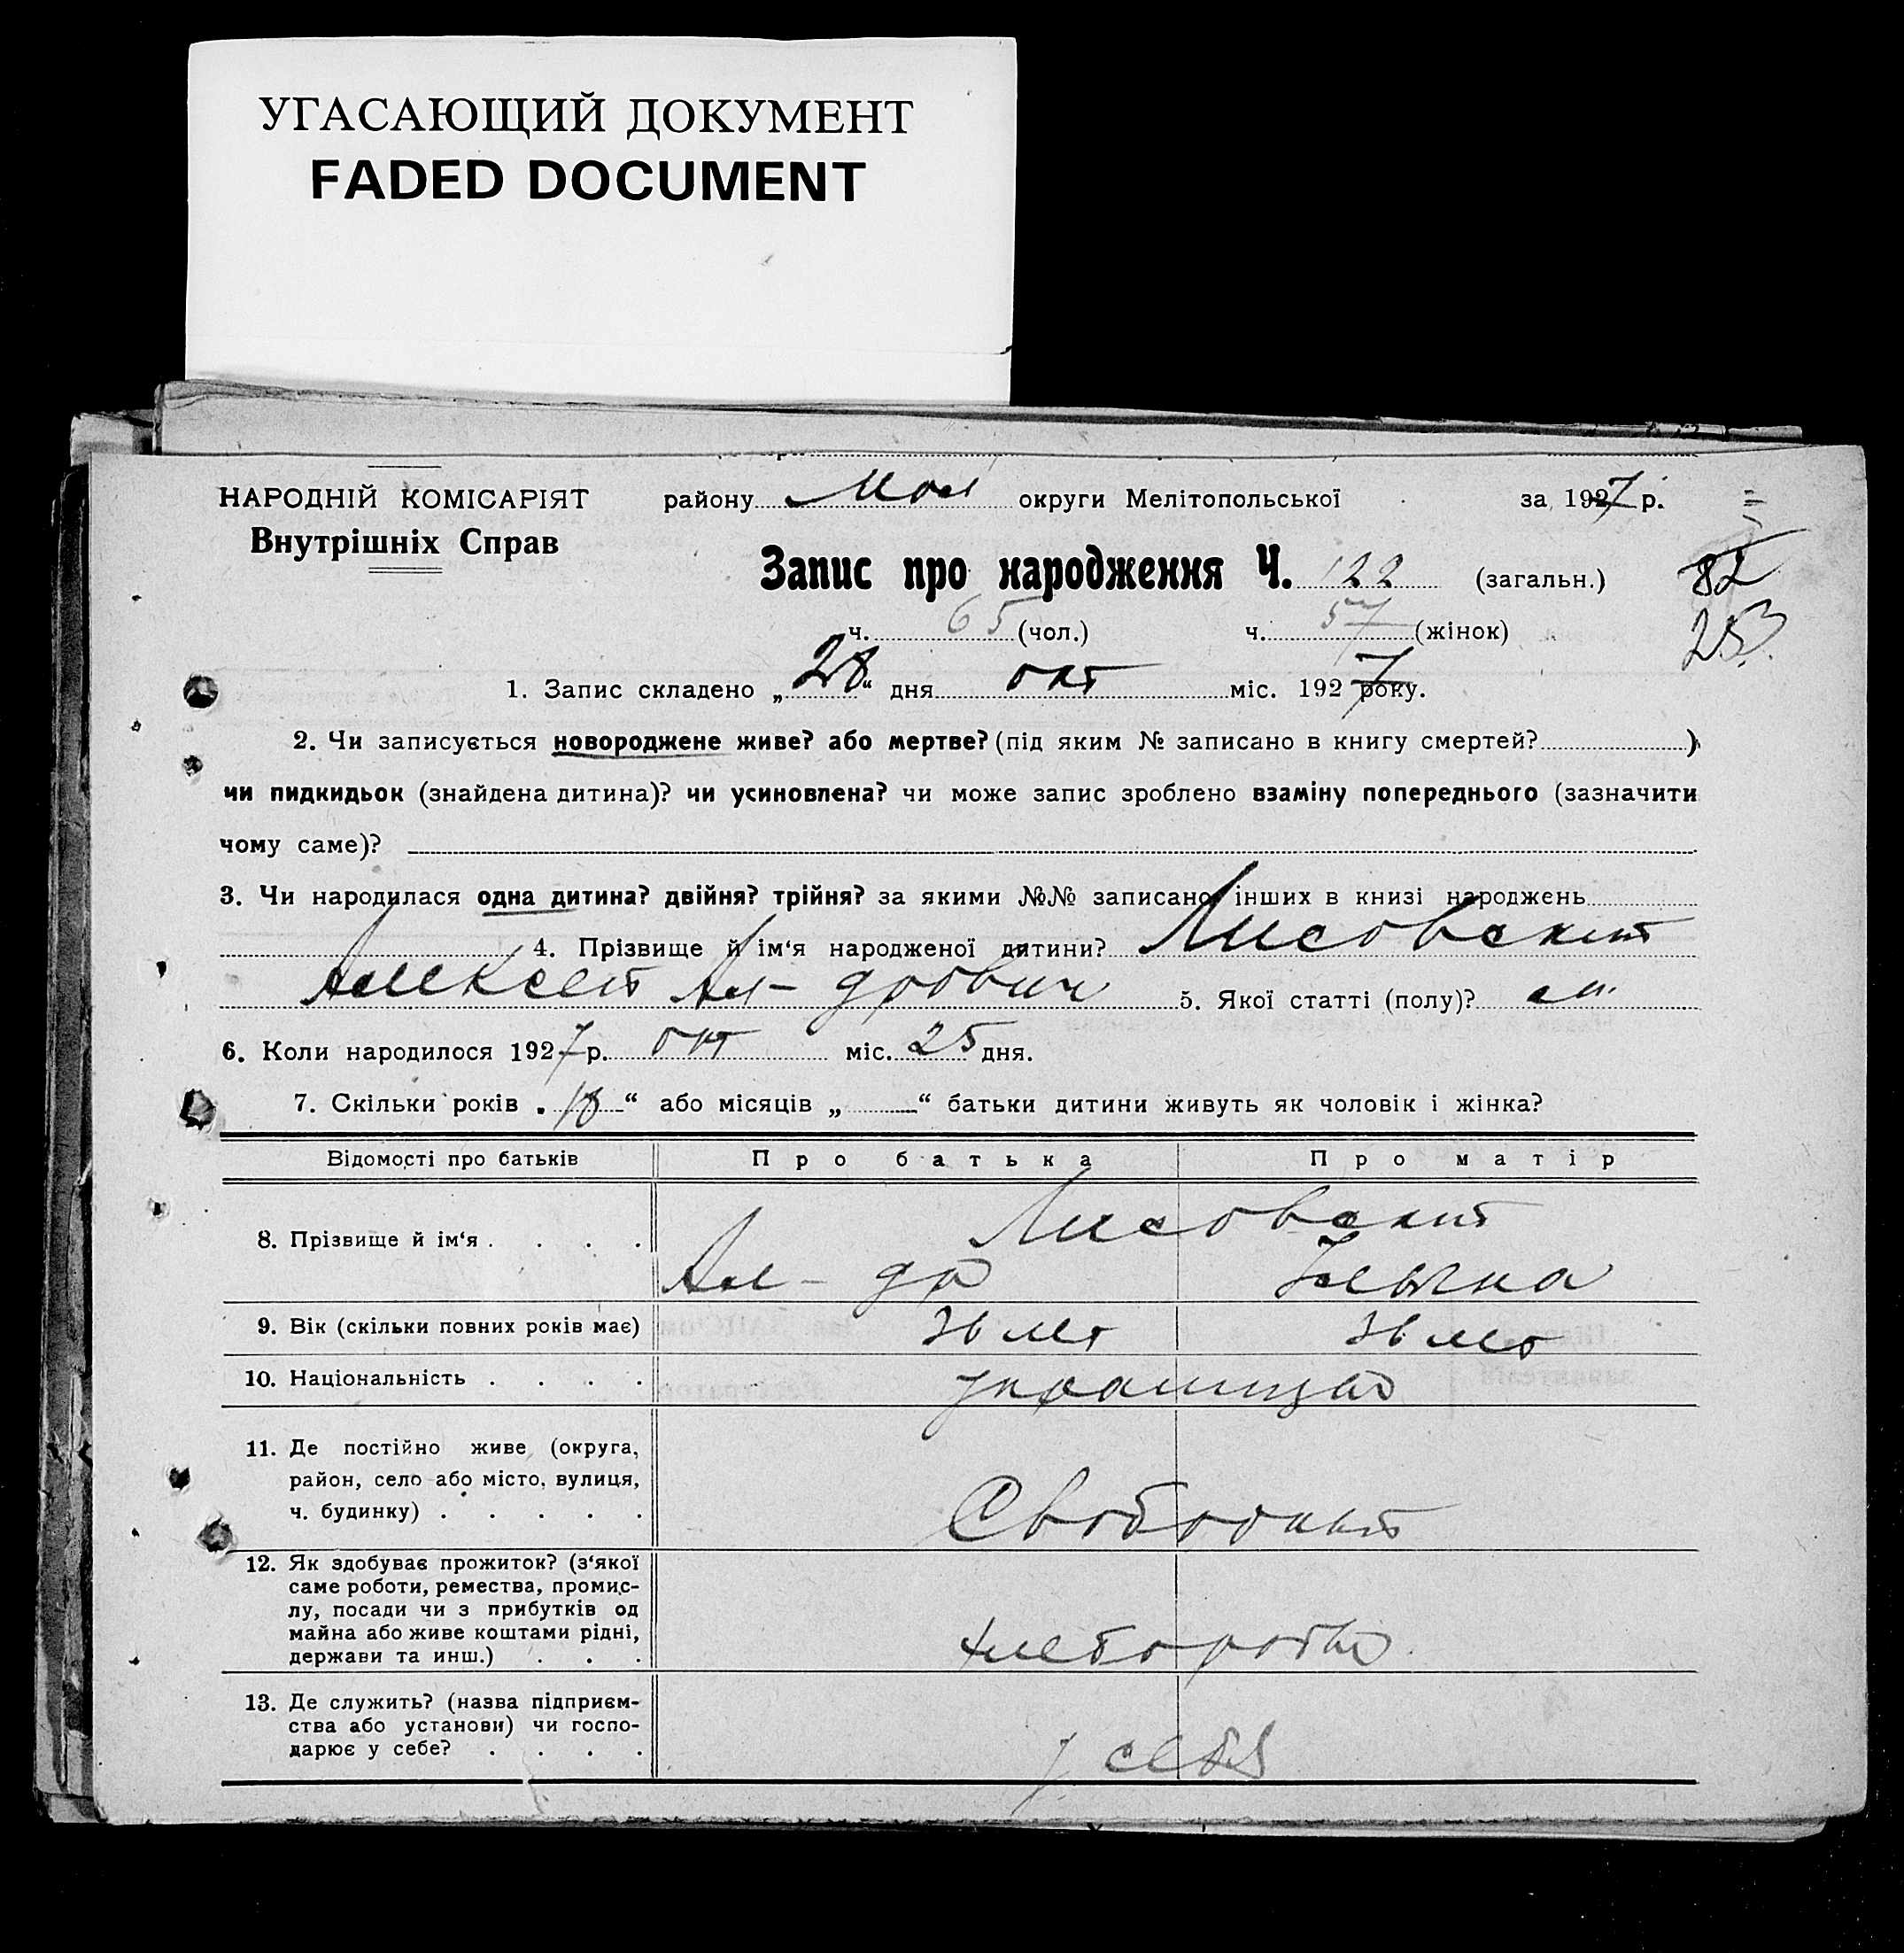 УГАСАЮЩИЙ ДОКУМЕНТ
FADED DOCUMENT
НАРОДНІЙ КОМІСАРІЯТ
Внутрішніх Справ
району Мол округи Мелітопольської за 1927 р.
Запис про народження Ч. 122 (загальн.)
82
ч. 65 (чол.) ч. 57 (жінок)
253
1. Запис складено „28“ дня окт міс. 1927 року.
2. Чи записується новороджене живе? або мертве? (під яким № записано в книгу смертей? )
чи пидкидьок (знайдена дитина)? чи усиновлена? чи може запис зроблено взаміну попереднього (зазначити
чому саме)?
3. Чи народилася одна дитина? двійня? трійня? за якими №№ записано інших в книзі народжень
4. Прізвище й ім‘я народженої дитини? Лисовский
Алексей Ал-дрович 5. Якої статті (полу)? м.
6. Коли народилося 1927 р. окт міс. 25 дня.
7. Скільки років „18“ або місяців „ “ батьки дитини живуть як чоловік і жінка?
Відомості про батьків Про батька Про матір
8. Прізвище й ім‘я . . . . Лисовский
Ал-др
9. Вік (скільки повних років має) 36 лет 36 лет
10. Національність . . . . украинцы
11. Де постійно живе (округа,
район, село або місто, вулиця,
ч. будинку) . . . . . Свободный
12. Як здобуває прожиток? (з‘якої
саме роботи, ремества, промис-
лу, посади чи з прибутків од
майна або живе коштами рідні,
держави та инш.) . . . хлебороб
13. Де служить? (назва підприєм-
ства або установи) чи госпо-
дарює у себе? . . . . у себя